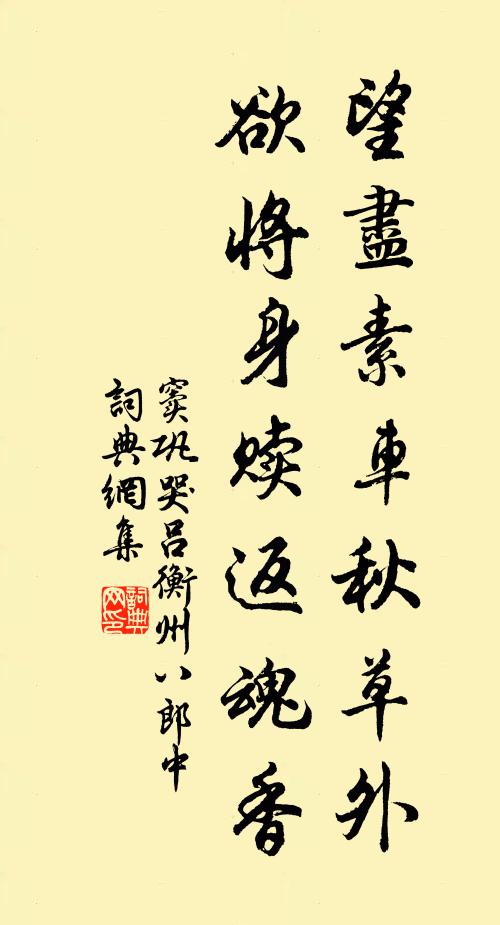 望盡素車秋草外
欲將身贖返魂香
竇巩哭呂衡州八郎中
詞典網集
詞典网印